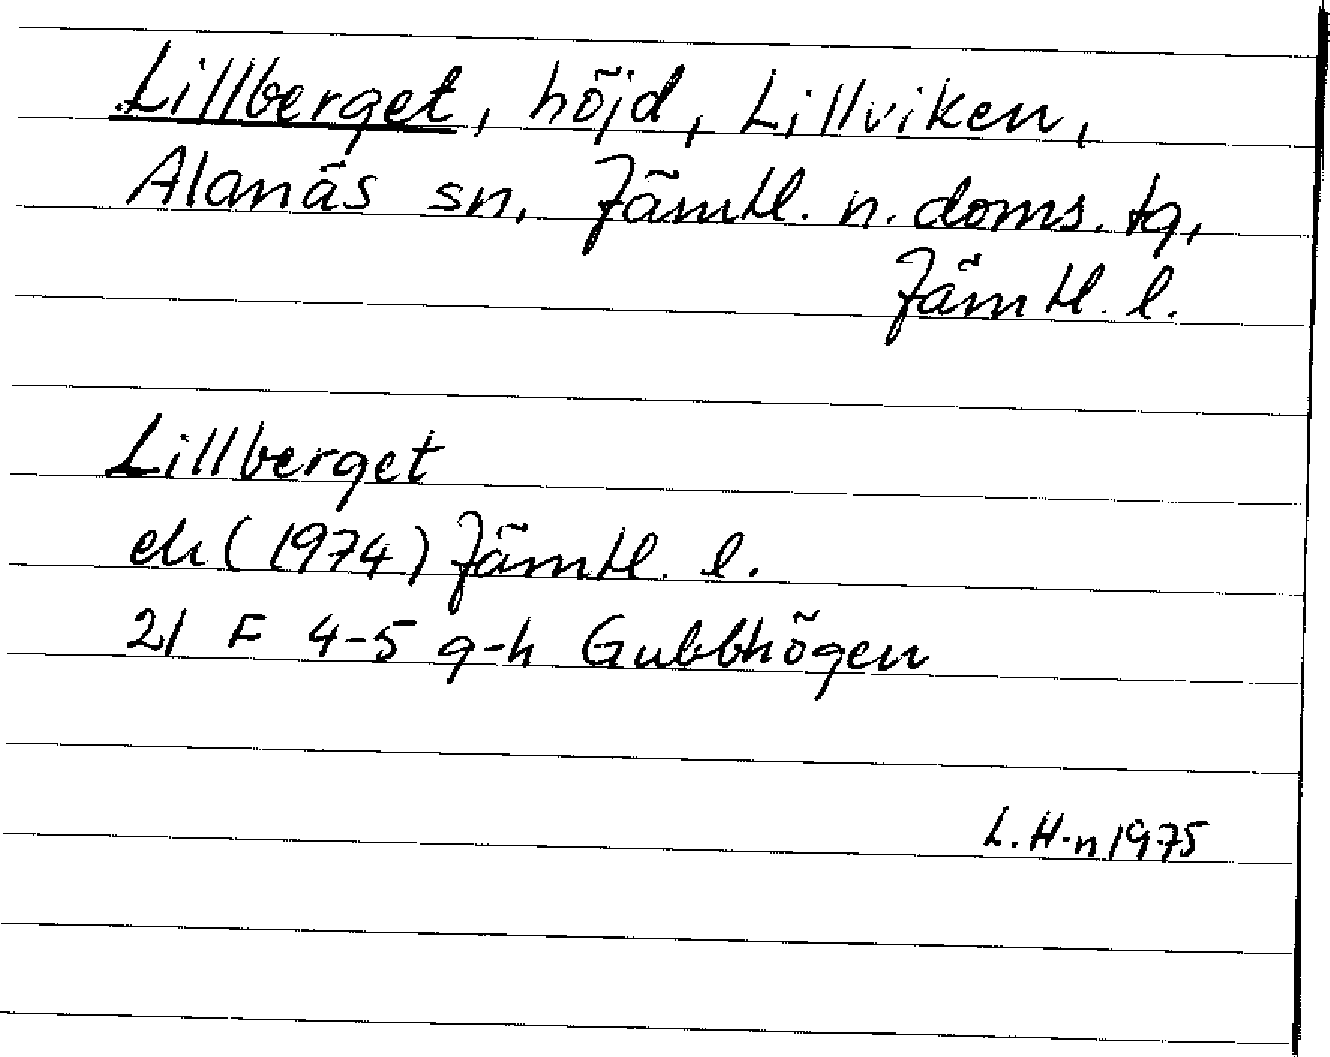 Lillberget, höjd, Lillviken,
Alanäs sn, Jämtl. n. doms. tg,
Jämtl. l.
Lillberget
ek (1974) Jämtl. l.
21 F 4-5 g-h Gubbhögen
L. H-n 1975